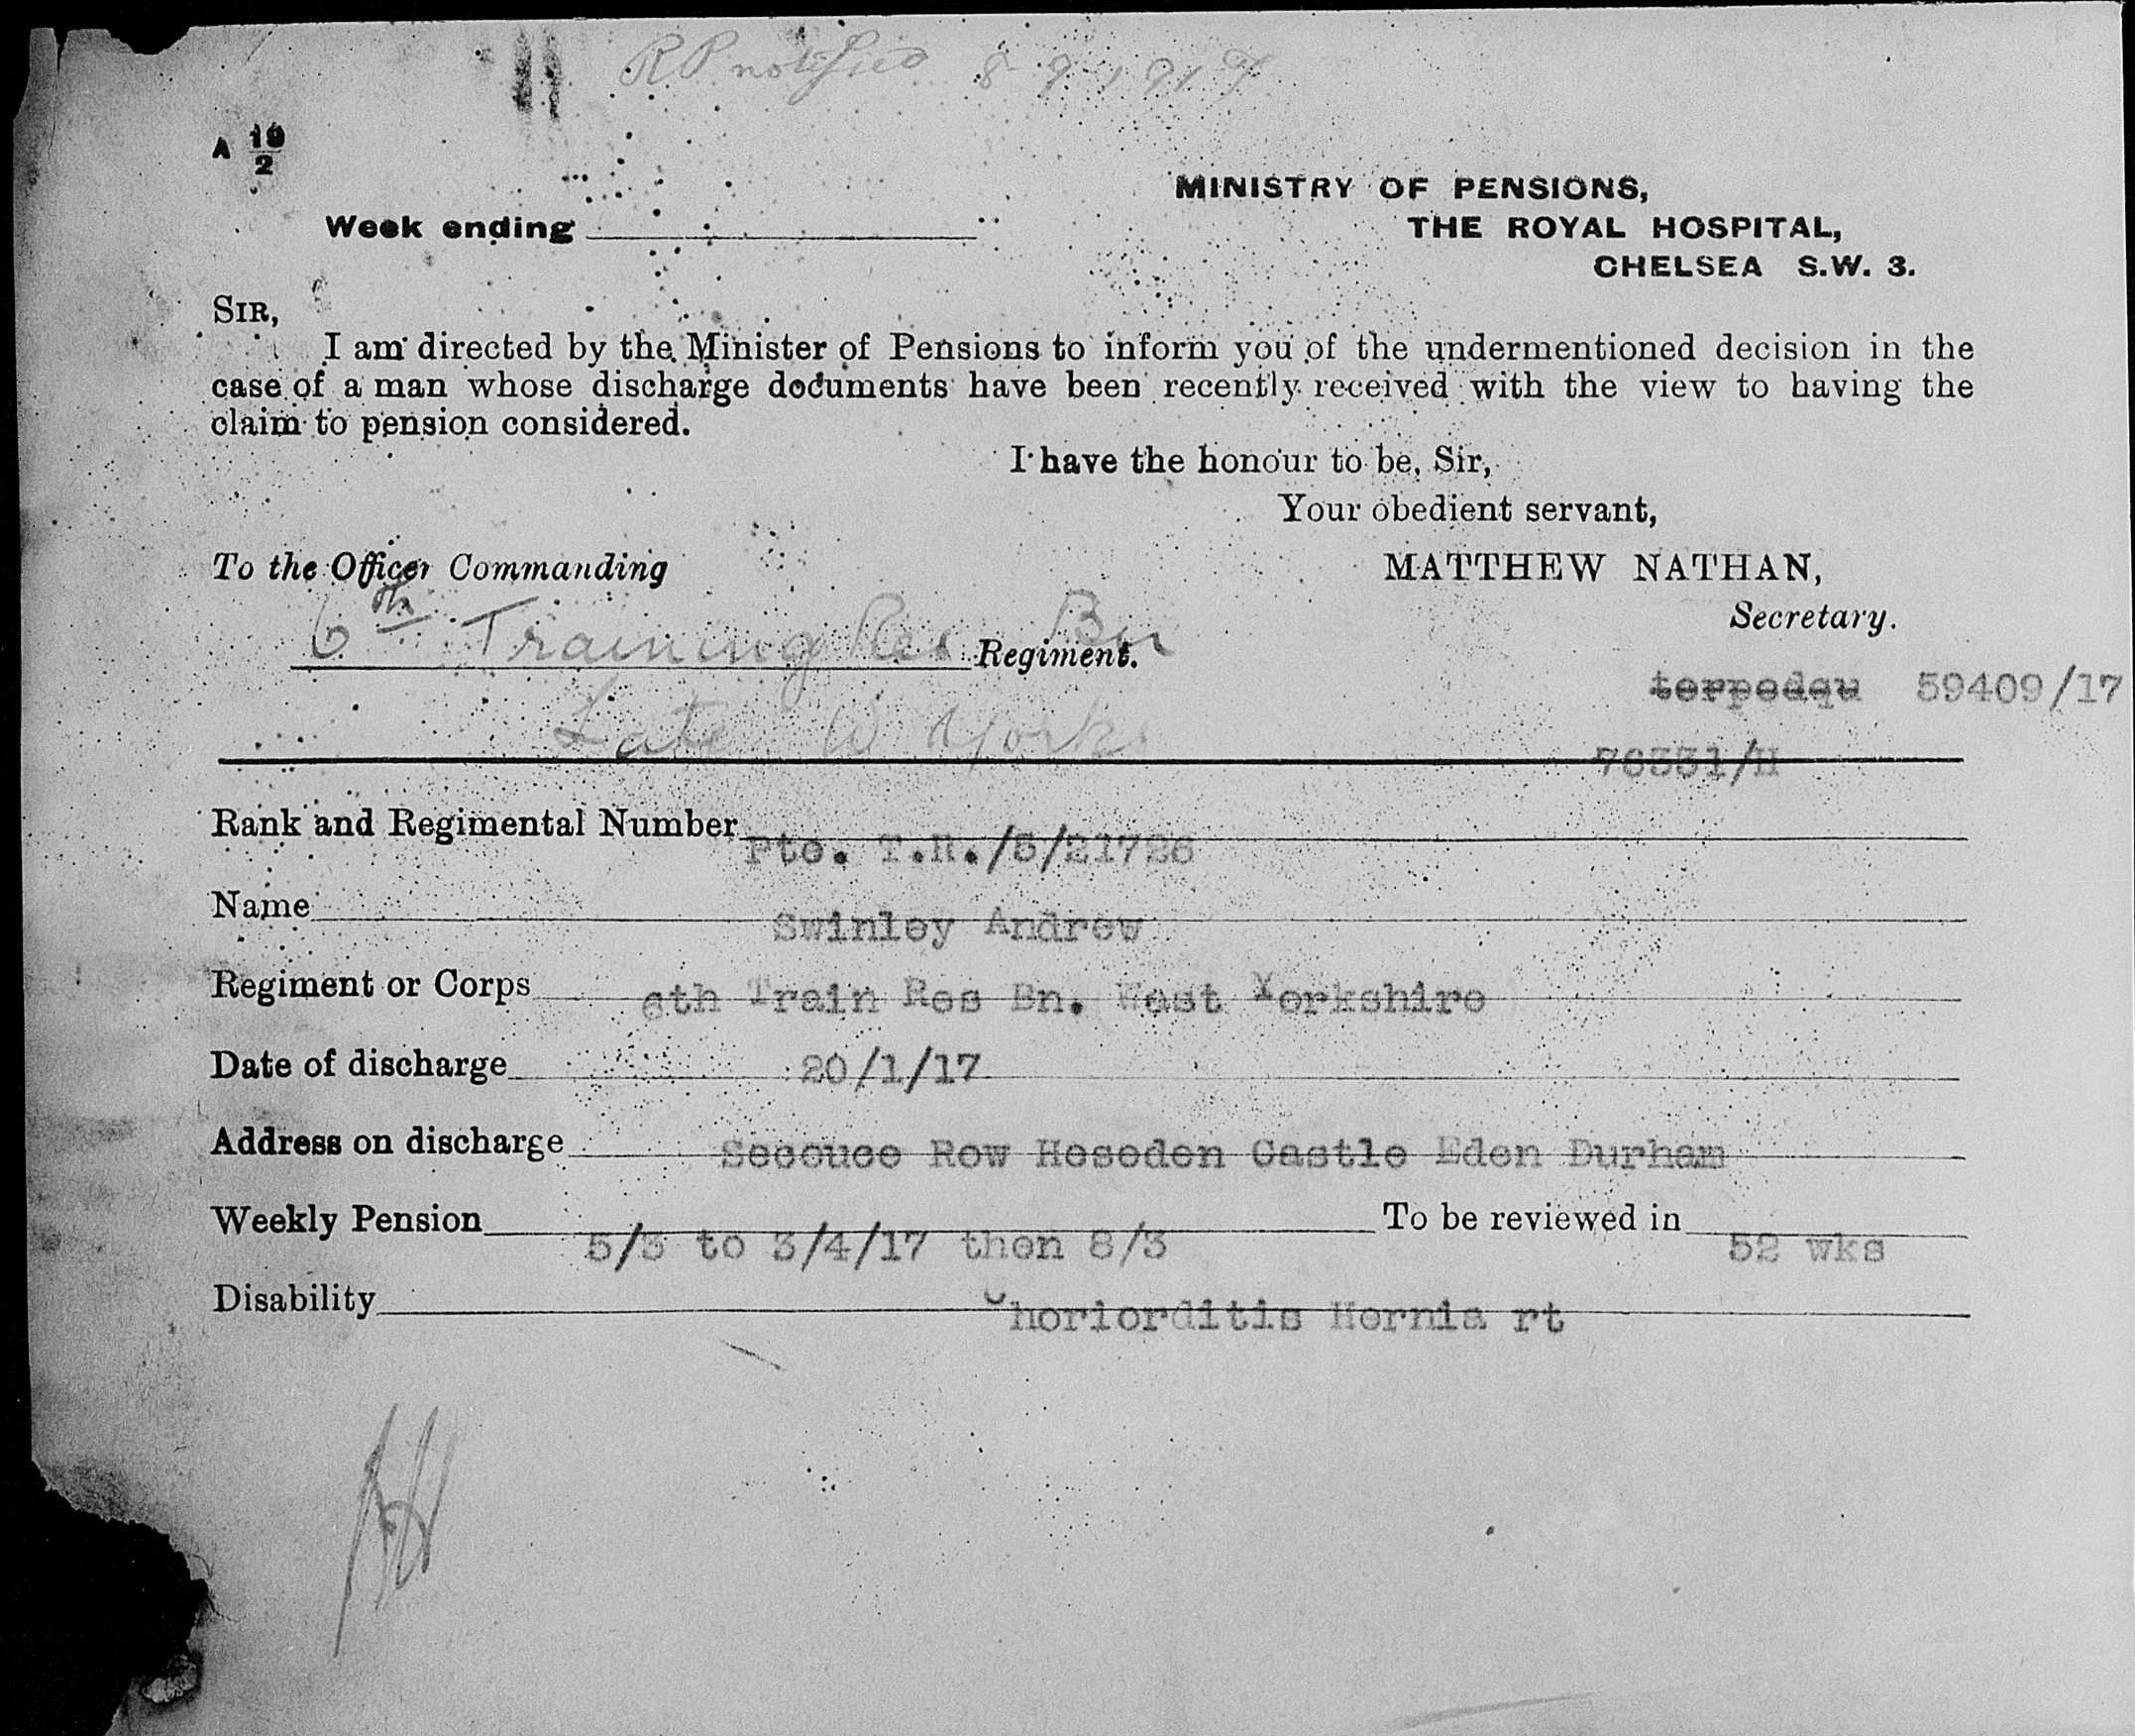 RP notified 8 9 1917
A 19/2
MINISTRY OF PENSIONS,
Week ending
THE ROYAL HOSPITAL,
CHELSEA S.W. 3.
SIR,
I am directed by the Minister of Pensions to inform you of the undermentioned decision in the
case of a man whose discharge documents have been recently received with the view to having the
claim to pension considered.
I have the honour to be, Sir,
Your obedient servant,
To the Officer Commanding
MATTHEW NATHAN,
Secretary.
6th Training Res Bn
Regiment.
59409/17
Late W Yorks
76331/H
Rank and Regimental Number Pte. T.R./5/21726
Name Swinley Andrew
Regiment or Corps 6th Train Res Bn. West Yorkshire
Date of discharge 20/1/17
Address on discharge Secouce Row Heseden Castle Eden Durham
Weekly Pension 5/3 to 3/4/17 then 8/3 To be reviewed in 52 wks
Disability Choriorditis Hernia rt